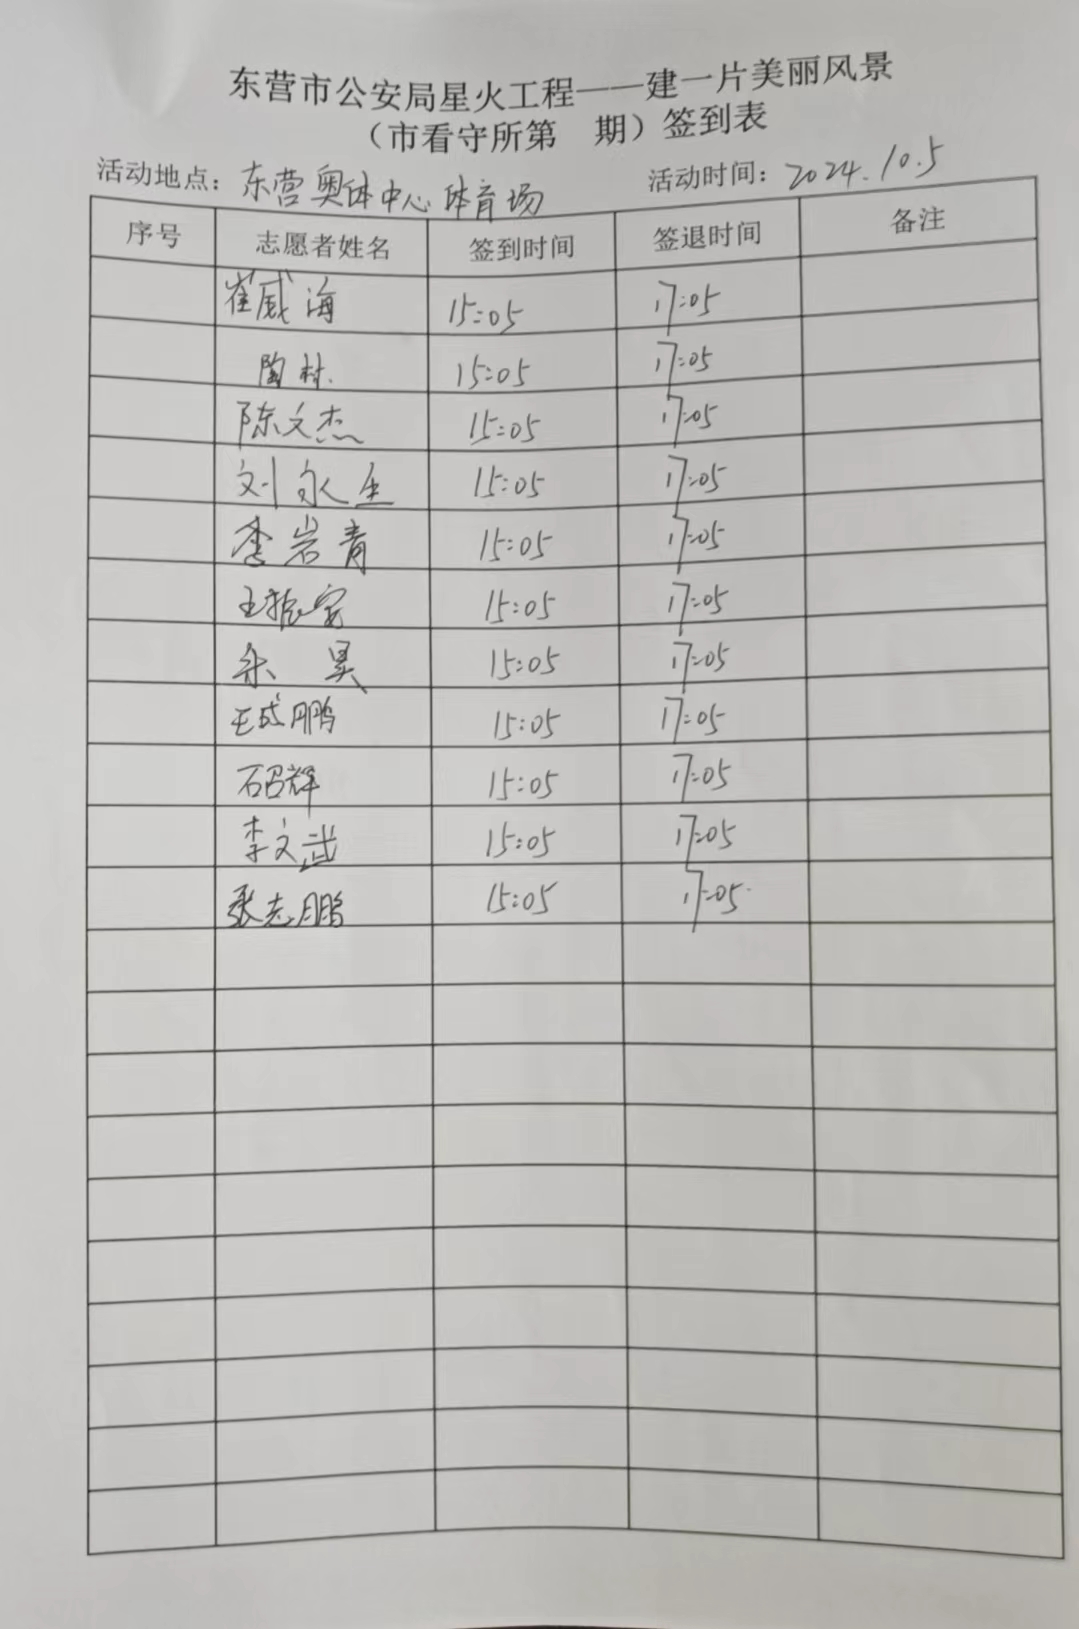 东营市公安局星火工程——建一片美丽风景
（市看守所第 期）签到表
活动地点：东营奥体中心体育场 活动时间：2024.10.5
序号 志愿者姓名 签到时间 签退时间 备注
崔威海 15:05 17:05
陶林 15:05 17:05
陈文杰 15:05 17:05
刘永生 15:05 17:05
李岩青 15:05 17:05
王振安 15:05 17:05
昊 15:05 17:05
王成鹏 15:05 17:05
石召辉 15:05 17:05
李文武 15:05 17:05
张志鹏 15:05 17:05